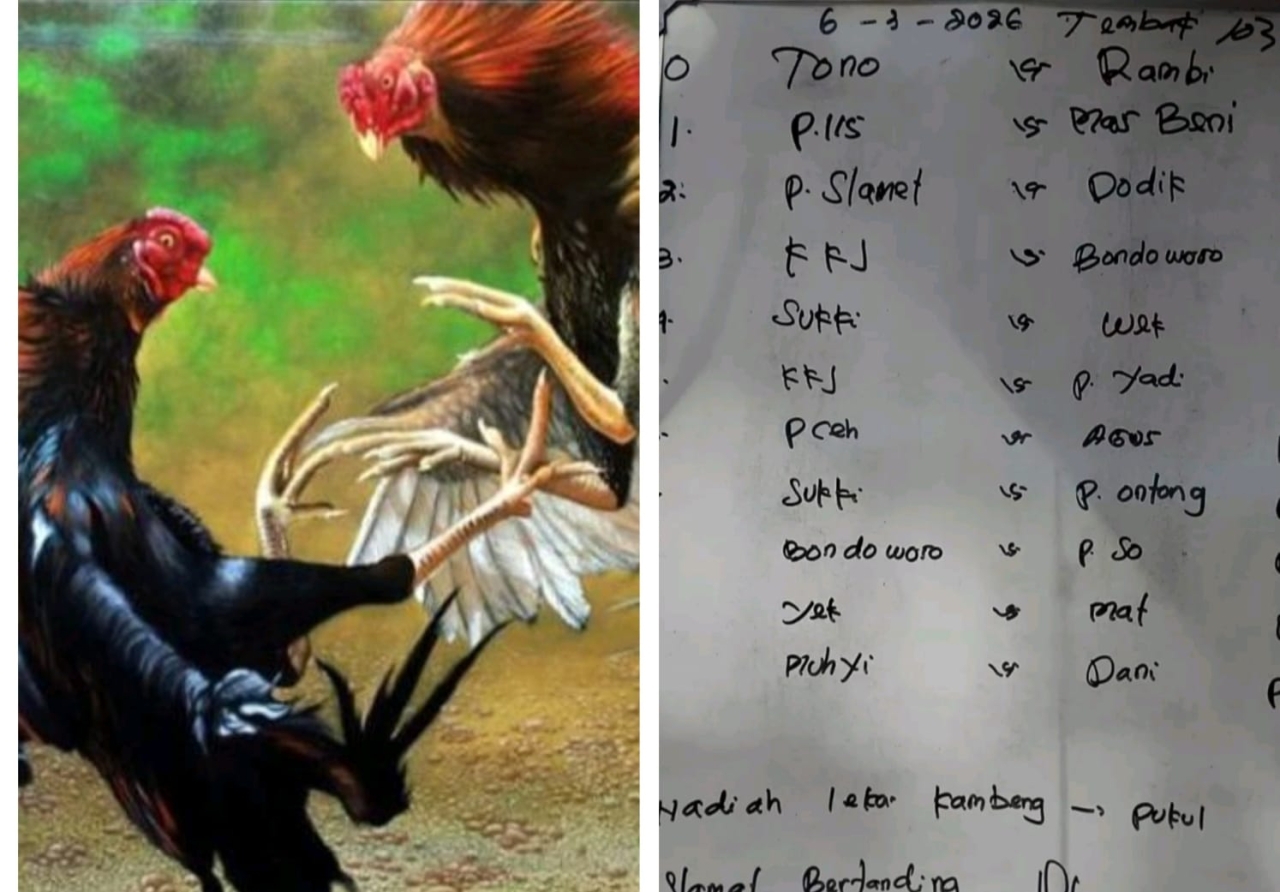 6 - 3 - 2026
0 Tono vs Rambi
1. P.IIS vs Mas Beni
2. P. Slamet vs Dodik
3. KKJ vs Bondowoso
Sukki vs Wek
KKJ vs P. Yadi
P Ceh vs Agus
Sukki vs P. ontong
Bondowoso vs P. So
Yek vs Mat
Muhyi vs Dani
kambeng → Pukul
Bertanding